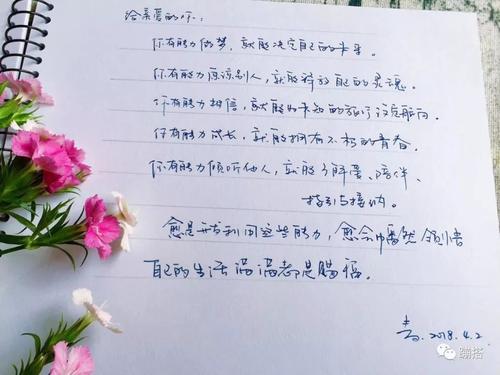 给亲爱的你：
你有能力做梦，就能决定自己的未来。
你有能力原谅别人，就能释放自己的灵魂。
你有能力相信，就能为未知的旅行设定航向。
你有能力成长，就能拥有不朽的青春。
你有能力倾听他人，就能了解爱、陪伴、
指引与接纳。
愈是开发利用这些能力，愈会幡然领悟
自己的生活满满都是赐福。
2018.4.2
蹦搭